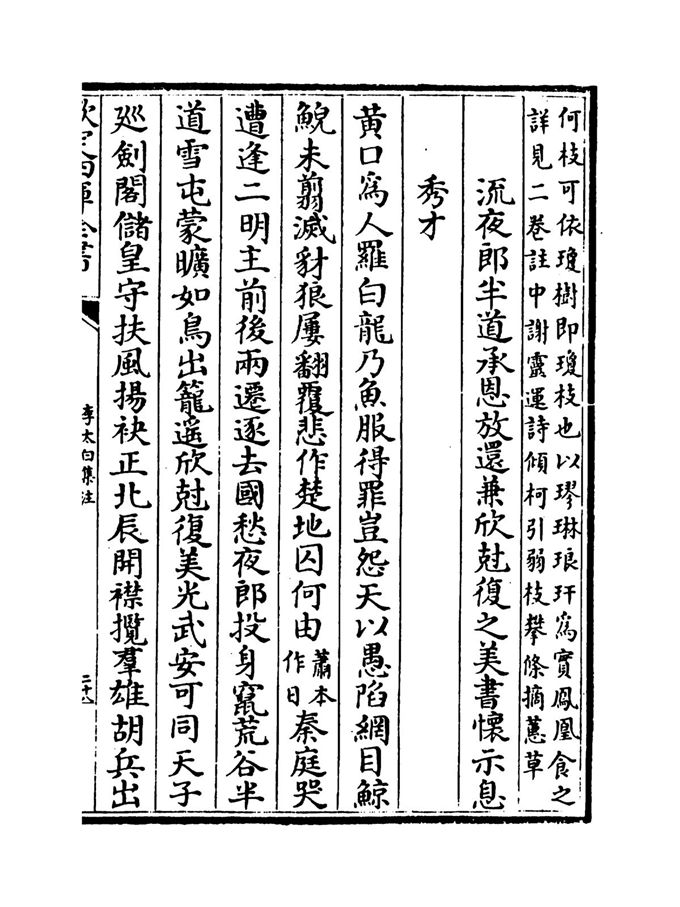 何枝可依瓊樹即瓊枝也以璆琳琅玕為實鳳凰食之
詳見二卷註中謝靈運詩傾柯引弱枝攀條摘蕙草
流夜郎半道承恩放還兼欣尅復之美書懷示息
秀才
黄口為人羅白龍乃魚服得罪豈怨天以愚陷網目鯨
鯢未翦滅豺狼屢翻覆悲作楚地囚何由蕭本作日秦庭哭
遭逢二明主前後兩遷逐去國愁夜郎投身竄荒谷半
道雪屯蒙曠如鳥出籠遥欣尅復美光武安可同天子
廵劍閣儲皇守扶風揚袂正北辰開襟攬羣雄胡兵出
李太白集注